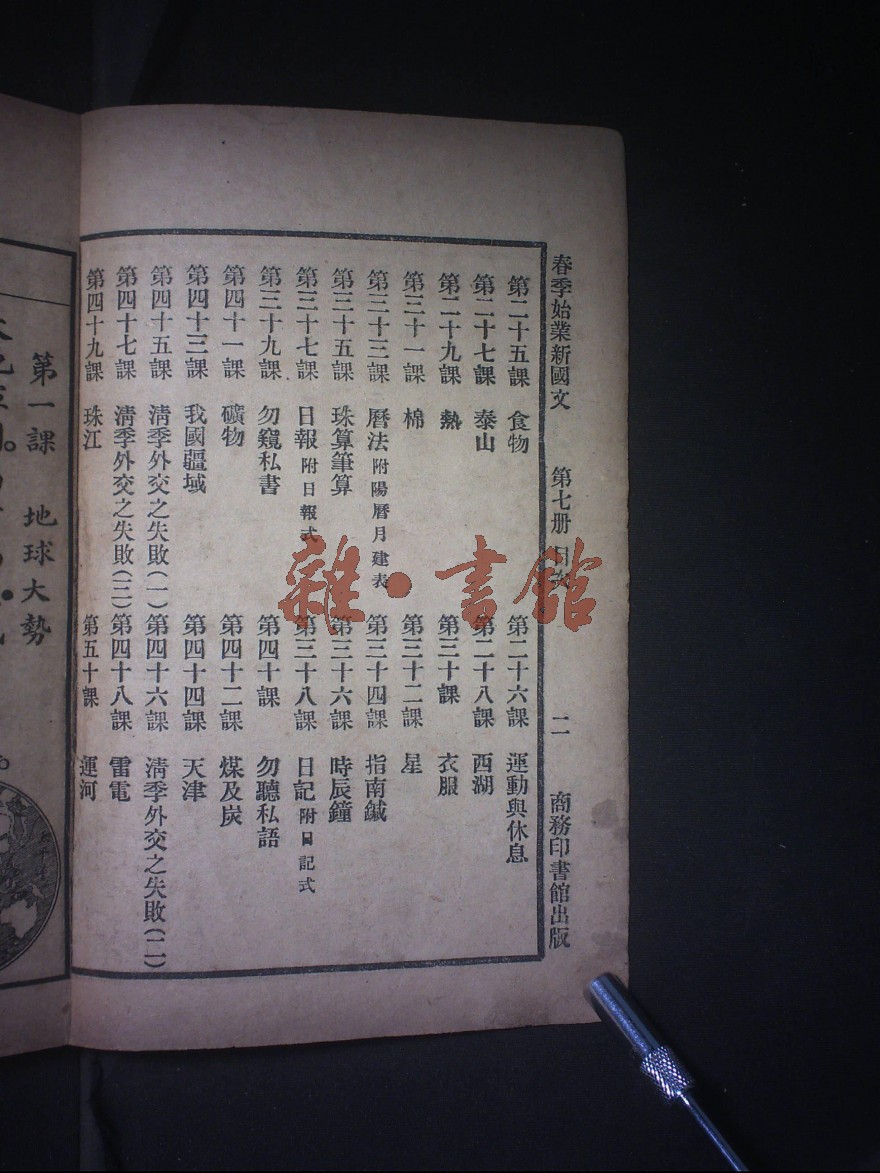 春季始業新國文 第七册 目次 二 商務印書館出版
第二十五課 食物 第二十六課 運動與休息
第二十七課 泰山 第二十八課 西湖
第二十九課 熱 第三十課 衣服
第三十一課 棉 第三十二課 星
第三十三課 曆法 附陽曆月建表 第三十四課 指南鍼
第三十五課 珠算筆算 第三十六課 時辰鐘
第三十七課 日報 附日報式 第三十八課 日記 附日記式
第三十九課 勿窺私書 第四十課 勿聽私語
第四十一課 礦物 第四十二課 煤及炭
第四十三課 我國疆域 第四十四課 天津
第四十五課 淸季外交之失敗(一) 第四十六課 淸季外交之失敗(二)
第四十七課 淸季外交之失敗(三) 第四十八課 雷電
第四十九課 珠江 第五十課 運河
第一課 地球大勢
雜·書館